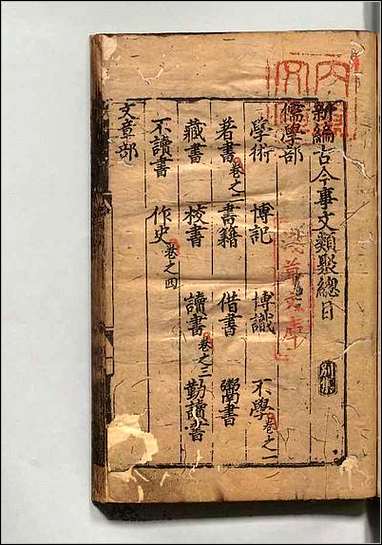 新編古今事文類聚總目 別集
儒學部
學術 博記 博識 不學 卷之一
著書 卷之二 書籍 借書 鬻書
藏書 校書 讀書 卷之三 勤讀書
不讀書 作史 卷之四
文章部